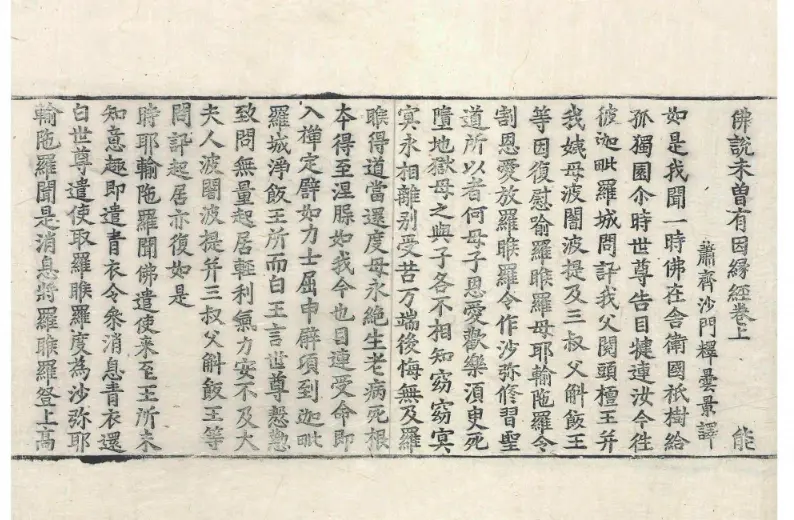 佛說未曾有因緣經卷上　能
蕭齊沙門釋曇景譯
如是我聞一時佛在舍衛國祇樹給
孤獨園尒時世尊告目揵連汝今往
彼迦毗羅城問訊我父閱頭檀王并
我姨母波闍波提及三叔父斛飯王
等因復慰喻羅睺羅母耶輸陁羅令
割恩愛放羅睺羅令作沙弥修習聖
道所以者何母子恩愛歡樂須臾死
墮地獄母之與子各不相知窈窈冥
冥永相離别受苦万端後悔無及羅
睺得道當還度母永絶生老病死根
夲得至涅槃如我今也目連受命即
入禪定譬如力士屈申臂項到迦毗
羅城淨飯王所而白王言世尊慇懃
致問無量起居輕利氣力安不及大
夫人波闍波提并三叔父斛飯王等
問訊起居亦復如是
時耶輸陁羅聞佛遣使来至王所未
知意趣即遣青衣令叅消息青衣還
白世尊遣使取羅睺羅度為沙弥耶
輸陁羅聞是消息將羅睺羅登上高